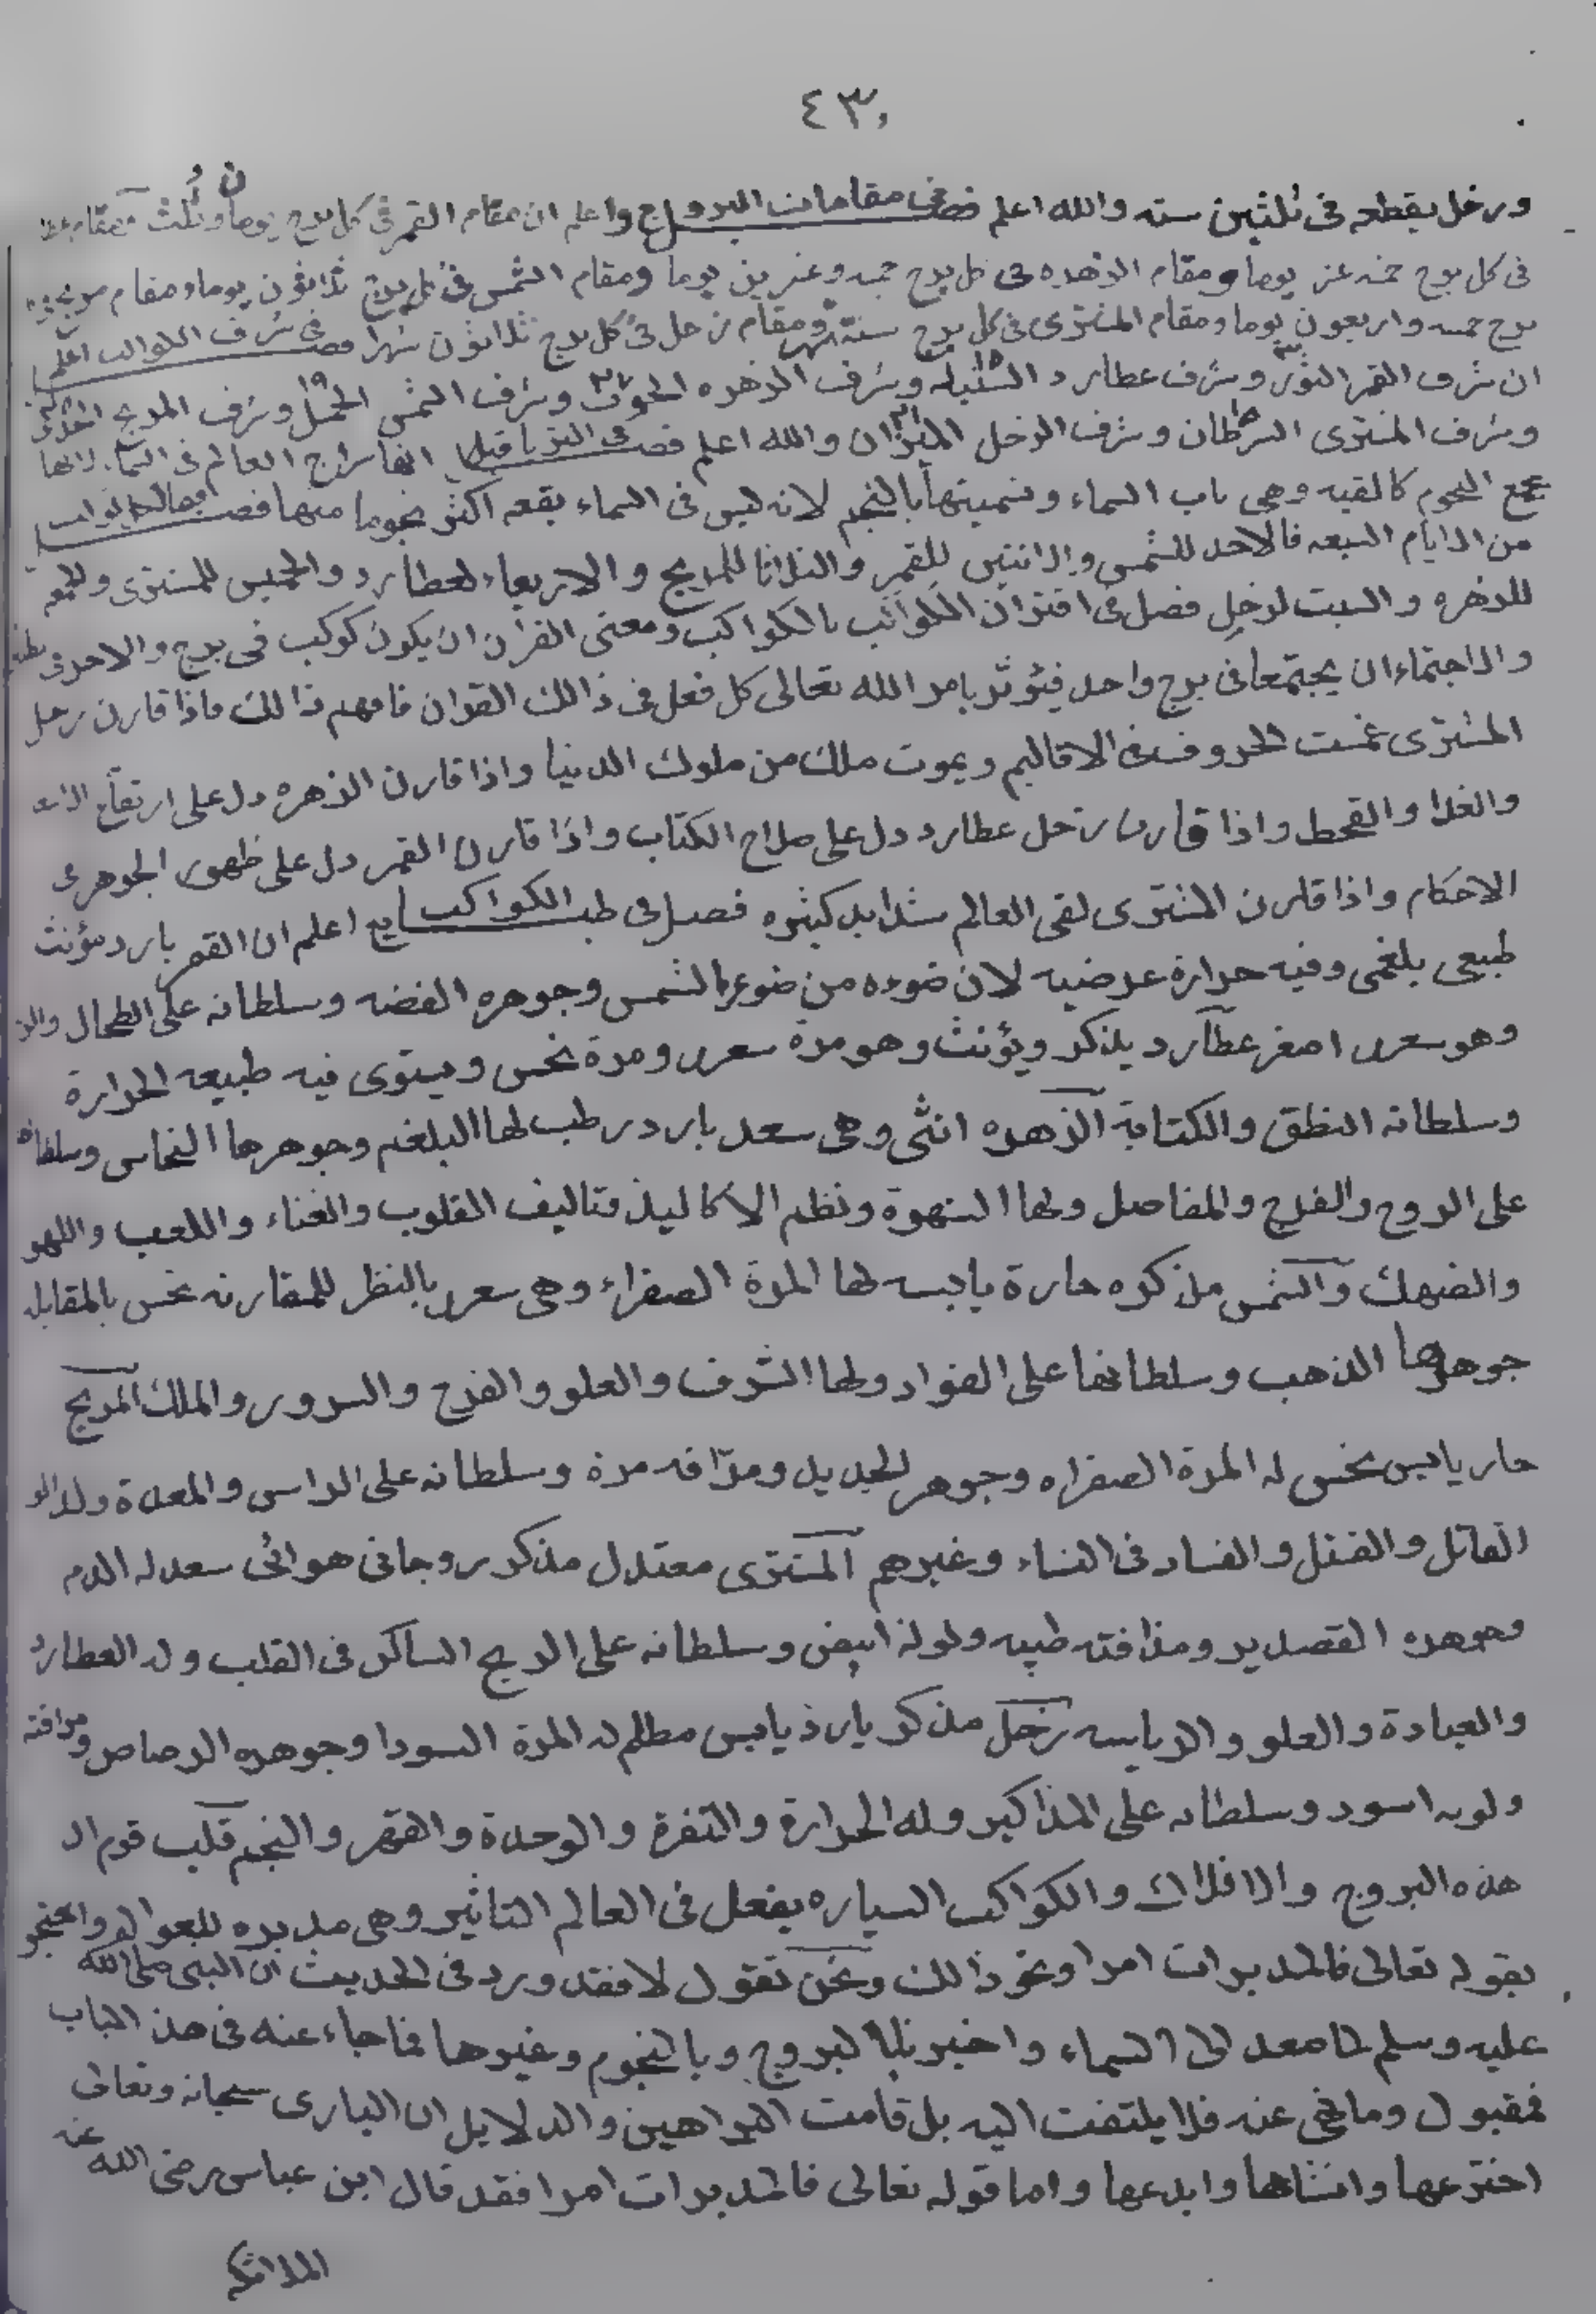 ٤٣
وزحل يقطعه فى ثلثين سنه والله اعلم فصل فى مقامات البروج واعلم ان مقام القمر فى كل برج يوما وثلث ومقام عطا
فى كل برج خمسه عشر يوما ومقام الزهره فى كل برج خمسه وعشرين يوما ومقام الشمس فى كل برج ثلاثون يوما ومقام مريخ فى
برج خمسه واربعون يوما ومقام المشترى فى كل برج سنة ومقام زحل فى كل برج ثلاثون شهرا فصل فى شرف الكواكب اعلم
ان شرف القمر الثور وشرف عطارد السنبله وشرف الزهره الحوت وشرف الشمس الحمل وشرف المريخ الجدى
وشرف المشترى السرطان وشرف الزحل الميزان والله اعلم فصل فى الثريا قيل انها سراج العالم فى السماء لانها
تجمع النجوم كالقبه وهى باب السماء وتسميتها بالنجم لانه ليس فى السماء بقعه اكثر نجوما منها فصل فيما للكواكب
من الايام السبعه فالاحد للشمس والاثنين للقمر والثلاثا للمريخ والاربعاء لعطارد والخميس للمشترى والجمعه
للزهره والسبت لزحل فصل فى اقتران الكواكب بالكواكب ومعنى القران ان يكون كوكب فى برج والاخر فى
والاجتماع ان يجتمعا فى برج واحد فيؤثر بامر الله تعالى كل فعل فى ذالك القران فافهم ذالك فاذا قارن زحل
المشترى الاقاليم ويموت ملك من ملوك الدنيا واذا قارن الزهره دل على ارتفاع
والغلا والقحط واذا قارن زحل عطارد دل على صلاح الكتاب واذا قارن القمر دل على ظهور الجوهر فى
الاحكام واذا قارن المشترى لقى العالم شدايد كثيره فصل فى طبايع الكواكب اعلم ان القمر بارد مؤنث
طبيعى بلغمى وفيه حرارة عرضيه لان ضوءه من ضوء الشمس وجوهره الفضه وسلطانه على الطحال
وهو سعد اصغر عطارد يذكر ويؤنث وهو مرة سعد ومرة نحس ويستوى فيه طبيعه الحرارة
وسلطانه النطق والكتابة الزهره انثى وهى سعد بارد رطب لها البلغم وجوهرها النحاس وسلطانه
على الروح والفرج والمفاصل ولها الشهوة ونظم الاكاليل وتاليف القلوب والغناء واللعب واللهو
والضحك والشمس مذكره حارة يابسه لها المرة الصفراء وهى سعد بالنظر للمقارنه نحس بالمقابله
جوهرها الذهب وسلطانها على الفواد ولها الشرف والعلو والفرح والسرور والملك المريخ
حار يابس نحس له المرة الصفراء وجوهر الحديد ومذاقه مرة وسلطانه على الراس والمعدة
القاتل والقتل والفساد فى النساء وغيرهم المشترى معتدل مذكر روحانى هوائى سعد له الدم
وجوهره القصدير ومذاقته طيبه ولونه ابيض وسلطانه على الريح الساكن فى القلب وله العطارد
والعبادة والعلو والرياسه زحل مذكر بارد يابس مظلم له المرة السودا وجوهره الرصاص ومذاقته
ولونه اسود وسلطانه على المذاكير وله الحرارة والنفرة والوحدة والقهر والنجم قلب قوم ان
هذه البروج والافلاك والكواكب السياره يفعل فى العالم التاثير وهى مدبره للعوالم واحتجو
بقوله تعالى فالمدبرات امرا ونحو ذالك ونحن نقول لا فقد ورد فى الحديث ان النبى صلى الله
عليه وسلم لما صعد الى السماء واخبرنا بالبروج وبالنجوم وغيرها فما جاء عنه فى هذ الباب
فمقبول وما نهى عنه فلا يلتفت اليه بل قامت البراهين والدلايل ان البارى سبحانه وتعالى
اخترعها وانشاها وابدعها واما قوله تعالى فالمدبرات امرا فقد قال ابن عباس رضى الله عنه
الملائكه